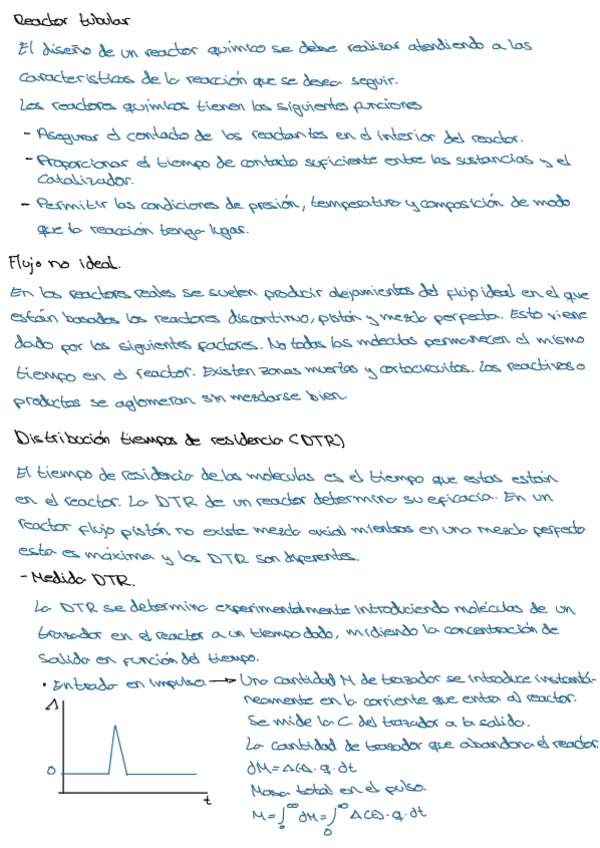 Reactor tubular
El diseño de un reactor químico se debe realizar atendiendo a las
características de la reacción que se desea seguir.
Los reactores químicos tienen las siguientes funciones
- Asegurar el contacto de los reactantes en el interior del reactor.
- Proporcionar el tiempo de contacto suficiente entre las sustancias y el
catalizador.
- Permitir las condiciones de presión, temperatura y composición de modo
que la reacción tenga lugar.
Flujo no ideal.
En los reactores reales se suelen producir alejamientos del flujo ideal en el que
están basados los reactores discontinuo, pistón y mezcla perfecta. Esto viene
dado por los siguientes factores. No todas las moléculas permanecen el mismo
tiempo en el reactor. Existen zonas muertas y cortocircuitos. Los reactivos o
productos se aglomeran sin mezclarse bien.
Distribución tiempos de residencia (DTR)
El tiempo de residencia de las moléculas es el tiempo que estas están
en el reactor. La DTR de un reactor determina su eficacia. En un
reactor flujo pistón no existe mezcla axial mientras en una mezcla perfecta
esta es máxima y las DTR son diferentes.
- Medida DTR.
La DTR se determina experimentalmente introduciendo moléculas de un
trazador en el reactor a un tiempo dado, midiendo la concentración de
salida en función del tiempo.
• Entrada en impulso → Una cantidad M de trazador se introduce instantá-
neamente en la corriente que entra al reactor.
Se mide la C del trazador a la salida.
La cantidad de trazador que abandona el reactor.
∂M = Δ(t) · q · dt
Masa total en el pulso.
M = ∫₀^∞ ∂M = ∫₀^∞ Δ(t) · q · dt
Δ
0
t